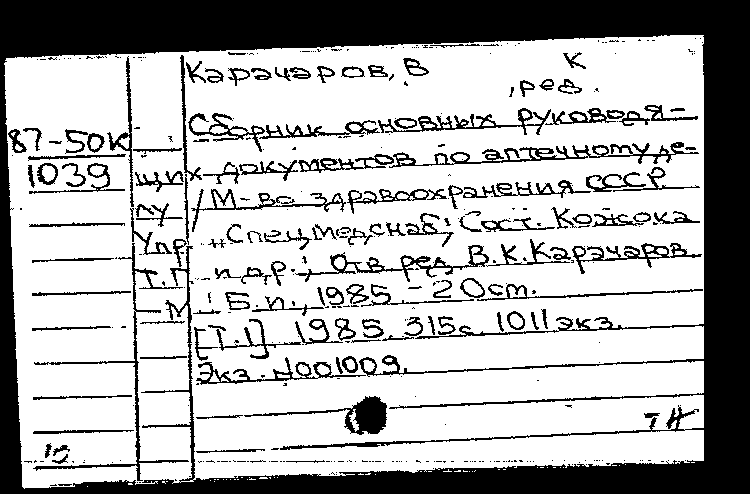 Карачаров, В К
, ред.
87-50К Сборник основных руководя-
1039 щих документов по аптечному де-
лу / М-во здравоохранения СССР.
Упр. „Спецмедснаб"; Сост. Кожока
Т.Г и др.; Отв ред. В.К.Карачаров
- М : Б.и., 1985 - 20 см.
[Т.1] 1985. 315с. 1011экз.
Экз. N001009.